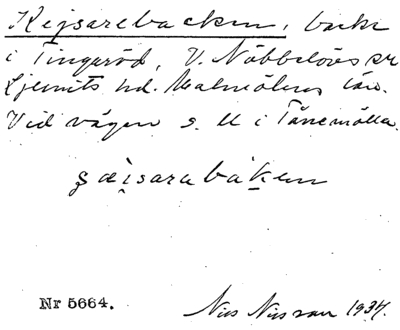 Kejsarebacken, backe
i Tingaröd, V. Nöbbelövs sn
Ljunits hd. Malmöhus län.
Vid vägen s. ut i Tånemölla.
ʂæi̯sarabákɛn
Nr 5664.
Nils Nilsson 1934.